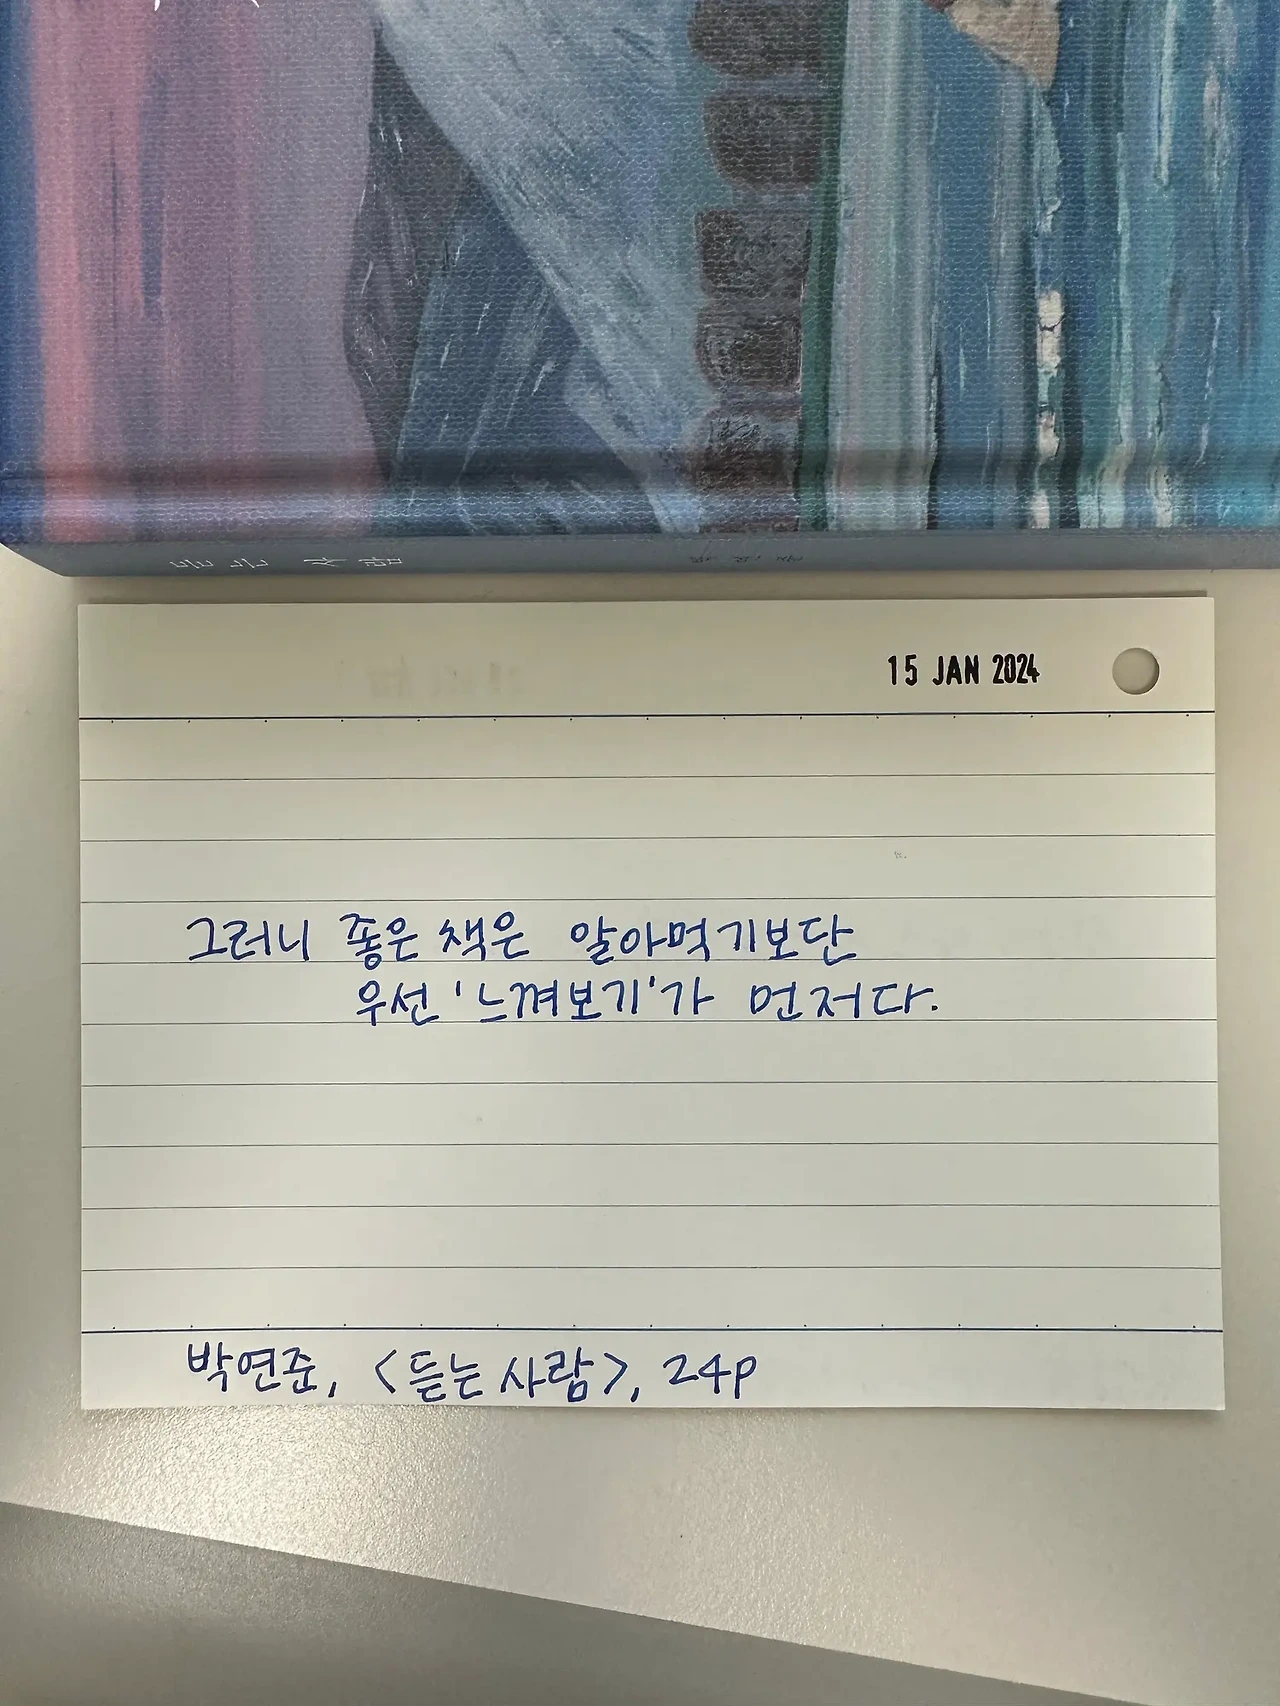 15 JAN 2024
그러니 좋은 책은 알아먹기보단
우선 '느껴보기'가 먼저다.
박연준, <듣는 사람>, 24p